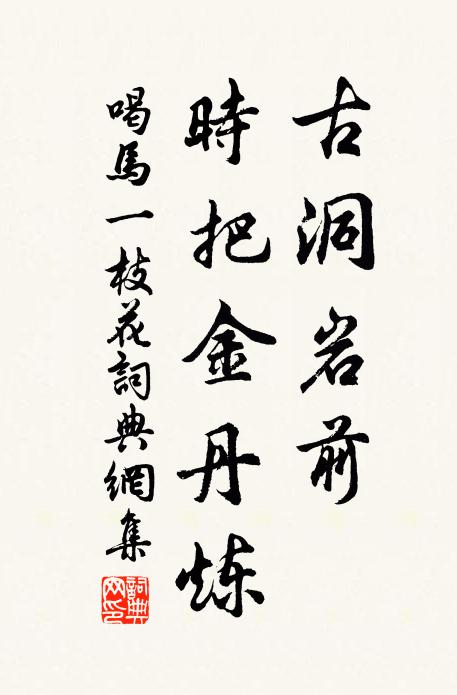 古洞岩前
時把金丹炼
喝馬一枝花詞典網集
詞典网印